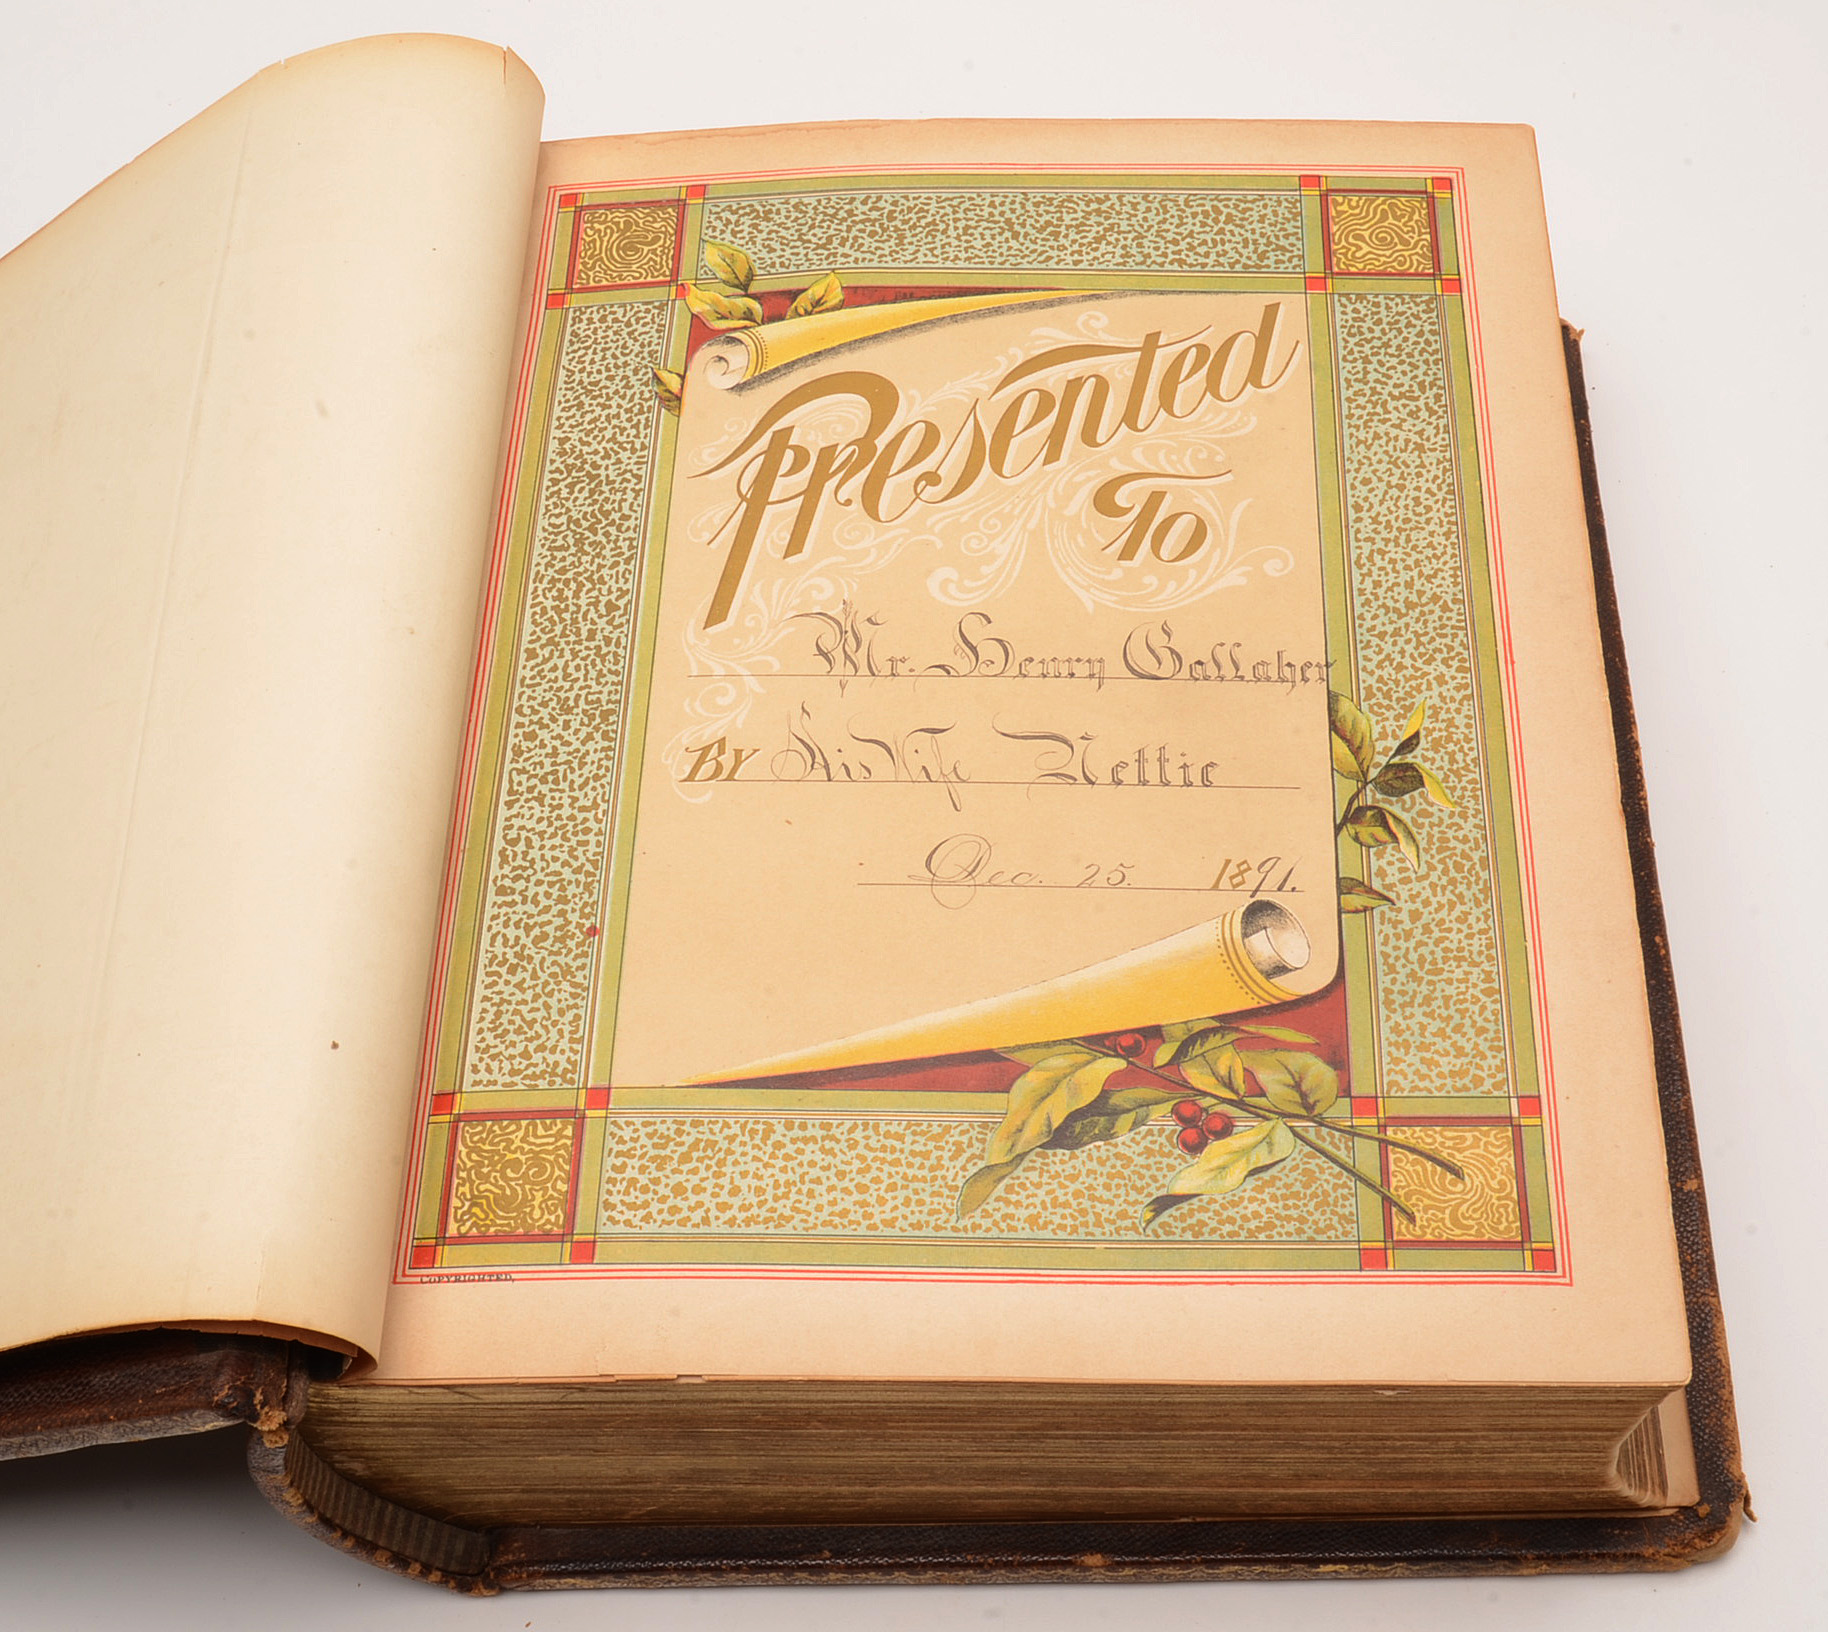 Presented
To
Mr. Henry Gallaher
By His Wife Nettie
Dec. 25. 1891.
COPYRIGHTED.